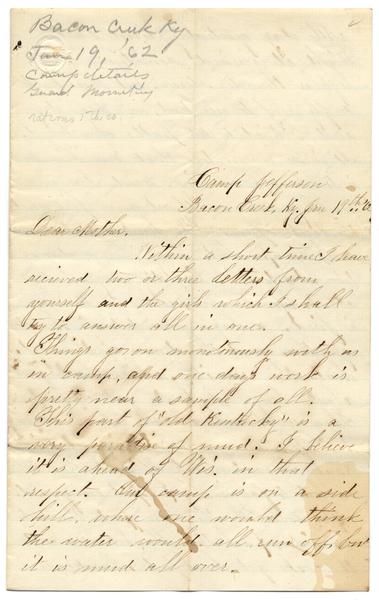 Bacon Creek Ky
Jan 19, '62
Camp details
Guard Mounting
rations 1 the co
Camp Jefferson
Bacon Creek, Ky. Jan 19th
Dear Mother,
Within a short time I have
recieved two or three letters from
yourself and the girls which I shall
try to answer all in one.
Things go on monotinously with us
in camp, and one days work is
pretty near a sample of all.
This part of "old Kentucky" is a
very paradise of mud. I believe
it is ahead of Wis. in that
respect. Our camp is on a side
hill, where one would think
the water would all run off, but
it is mud all over.